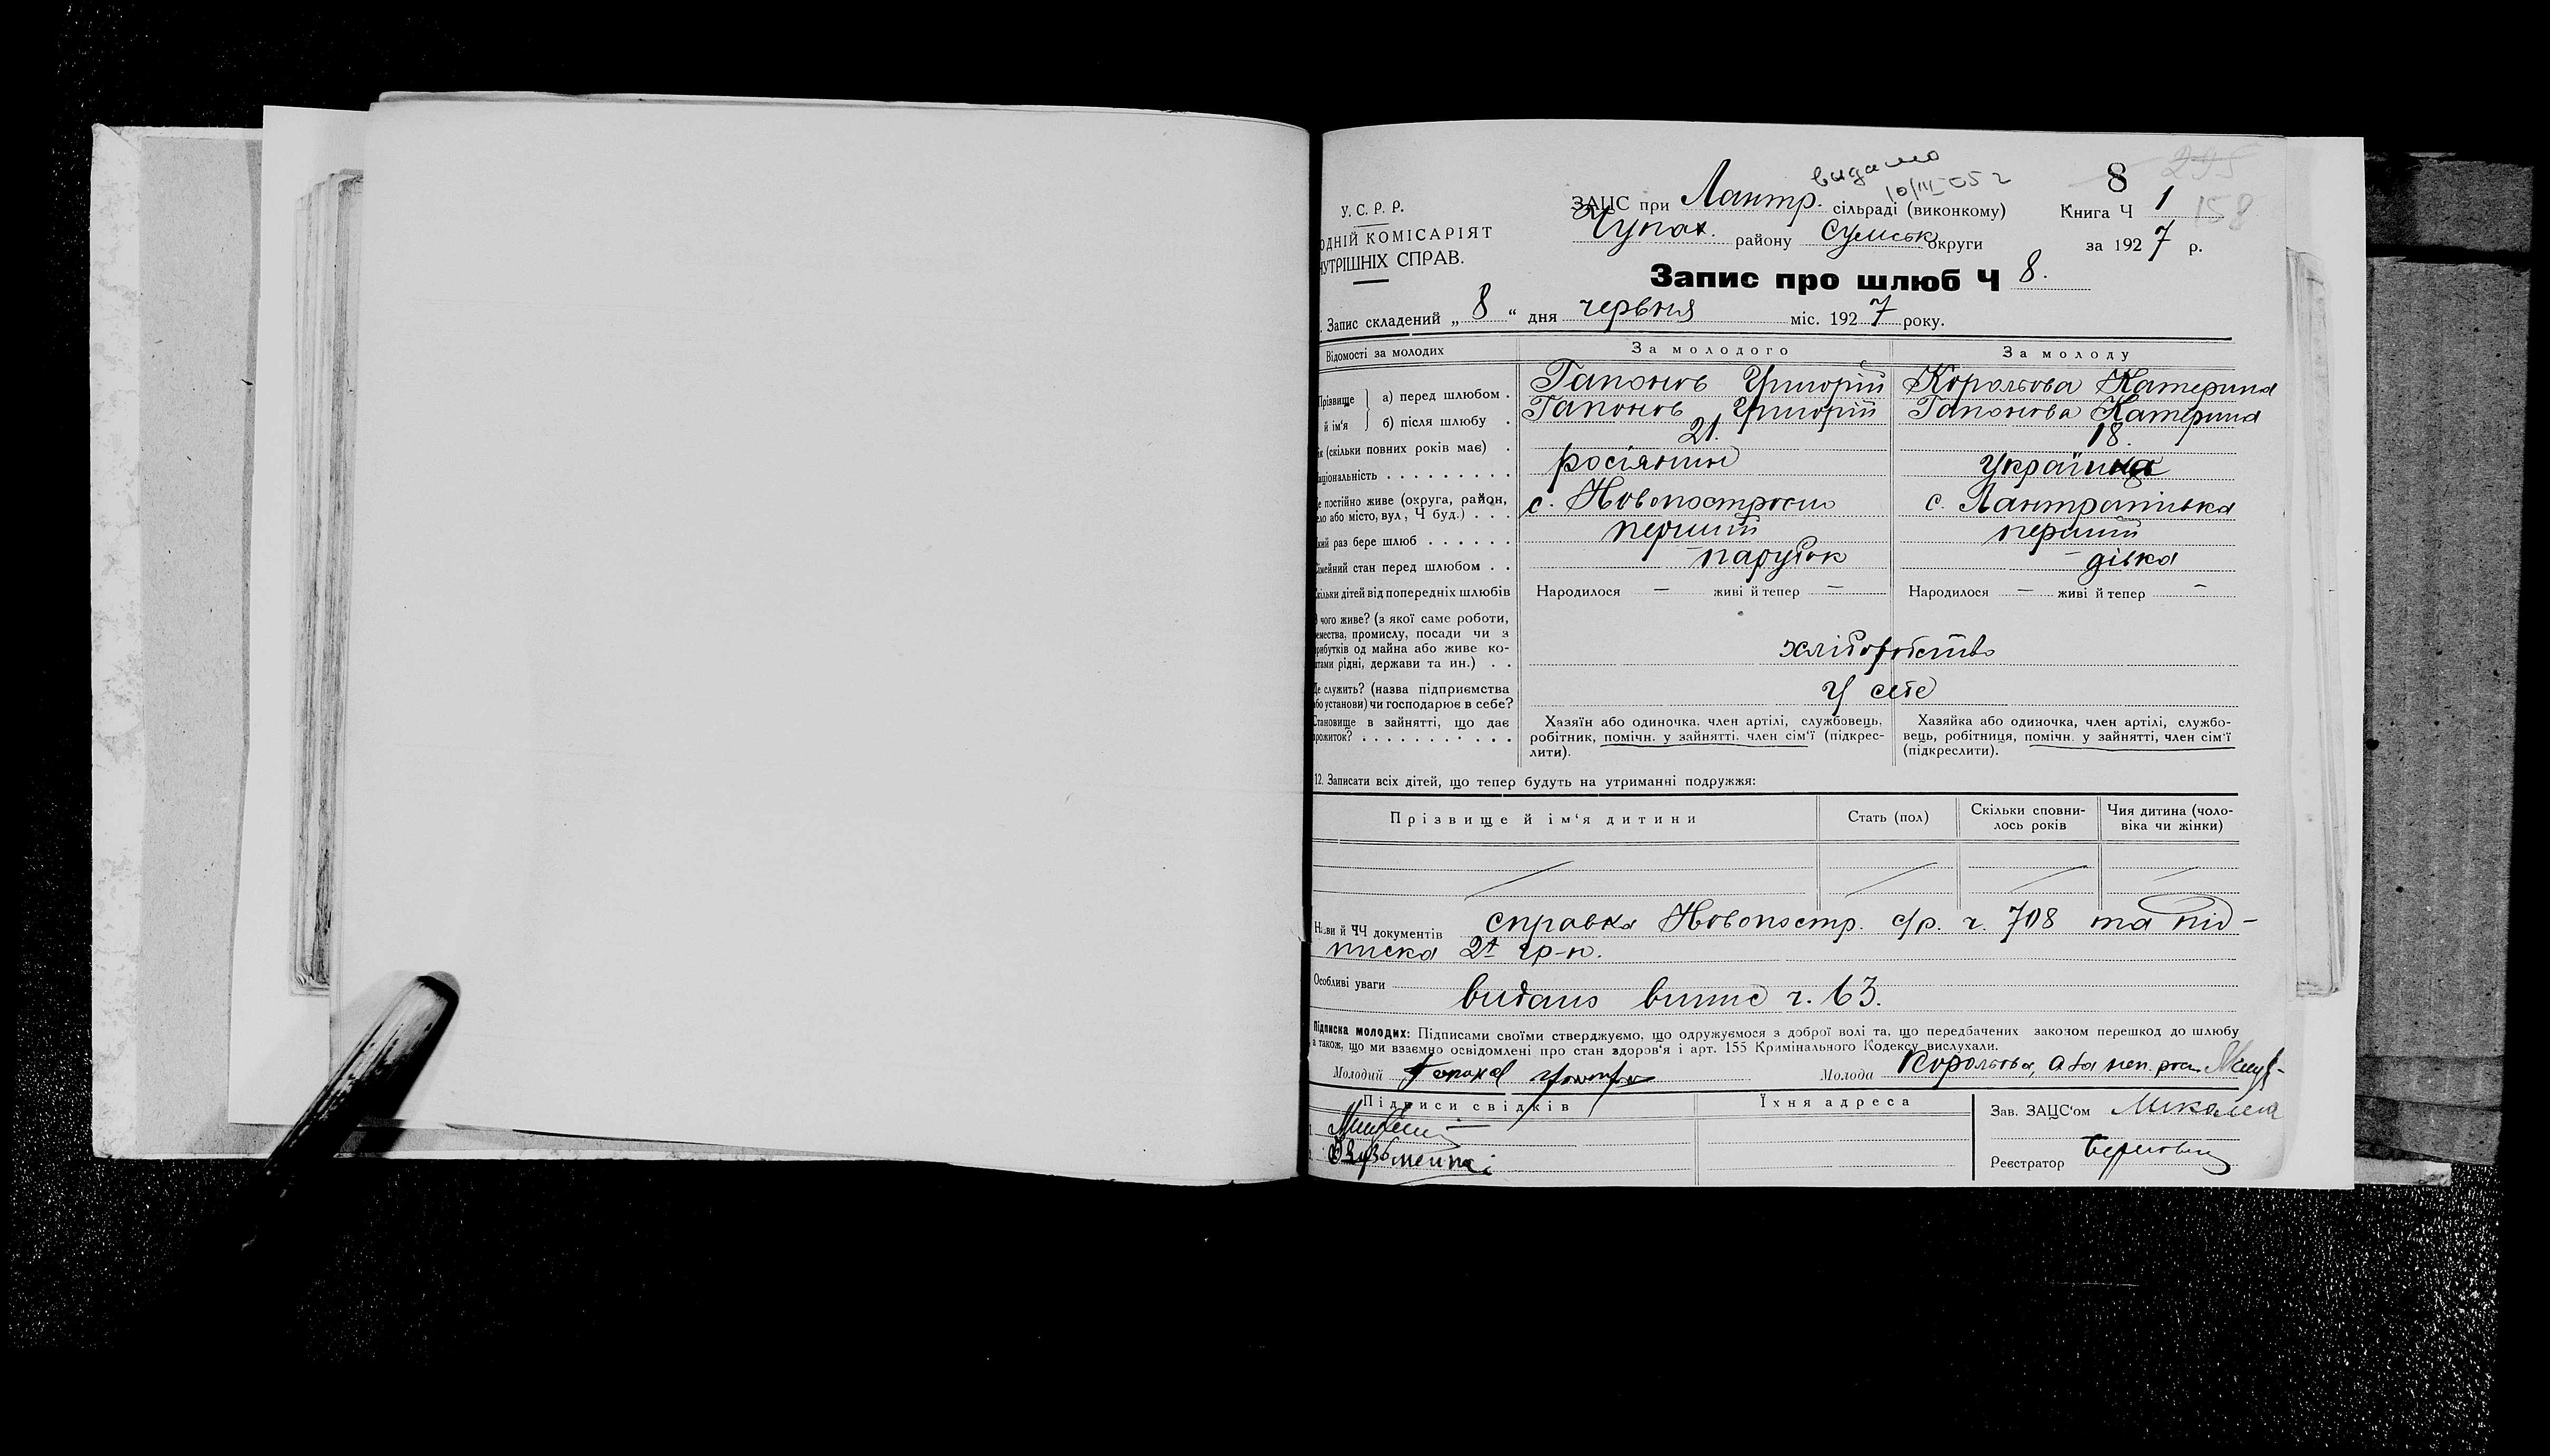 видано
10/III-05 г
8 295
У. С. Р. Р.
ЗАЦС при Лантр. сільраді (виконкому)
Книга Ч 1 158
ОДНІЙ КОМІСАРІЯТ
Чупах. району Сумськ округи
за 1927 р.
НУТРІШНІХ СПРАВ.
Запис про шлюб Ч 8.
. Запис складений „ 8 “ дня червня міс. 1927 року.
Відомості за молодих За молодого За молоду
Прізвище й ім'я а) перед шлюбом . Гапонов Григорій Корольова Катерина
б) після шлюбу . Гапонов Григорій Гапонова Катерина
ік (скільки повних років має) . 21. 18.
аціональність . . . . . . . . . росіянин Українка
е постійно живе (округа, район,
ело або місто, вул, Ч буд.) . . . с. Новопостроєно с. Лантратівка
кий раз бере шлюб . . . . . . перший перший
імейний стан перед шлюбом . . парубок дівка
кільки дітей від попередніх шлюбів Народилося — живі й тепер — Народилося — живі й тепер —
чого живе? (з якої саме роботи,
емества, промислу, посади чи з
рибутків од майна або живе ко-
тами рідні, держави та ин.) . . хліборобство
Де служить? (назва підприємства
або установи) чи господарює в себе? У себе
Становище в зайнятті, що дає
рожиток? . . . . . . . . . . .
Хазяїн або одиночка, член артілі, службовець,
робітник, помічн. у зайнятті, член сім'ї (підкрес-
лити).
Хазяйка або одиночка, член артілі, службо-
вець, робітниця, помічн. у зайнятті, член сім'ї
(підкреслити).
12. Записати всіх дітей, що тепер будуть на утриманні подружжя:
Прізвище й ім'я дитини Стать (пол) Скільки сповни-
лось років Чия дитина (чоло-
віка чи жінки)
Назви й ЧЧ документів справка Новопостр. с/р. ч. 708 та під-
писка 2х гр-н.
Особливі уваги видано випис ч. 63.
Підписка молодих: Підписами своїми стверджуємо, що одружуємося з доброї волі та, що передбачених законом перешкод до шлюбу
а також, що ми взаємно освідомлені про стан здоров'я і арт. 155 Кримінального Кодексу вислухали.
Молодий Молода Корольова, а за неп.
Підписи свідків Їхня адреса Зав. ЗАЦС'ом
Реєстратор